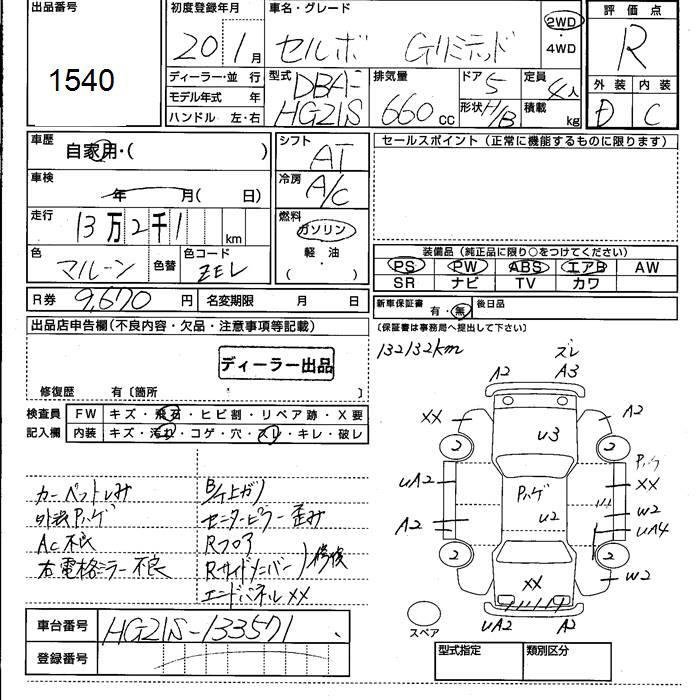 出品番号
1540
初度登録年月
20 1月
車名・グレード
セルボ Gリミテッド
2WD
・
4WD
評価点
R
外装 内装
D C
ディーラー・並行
モデル年式 年
ハンドル 左・右
型式
DBA-
HG21S
排気量
660cc
ドア 5
形状 H/B
定員
4人
積載
kg
車歴
自家用・( )
車検
年 月( 日)
走行
13万2千1
km
色
マルーン
色替
色コード
ZEL
シフト
AT
冷房
A/C
燃料
ガソリン
軽油
( ・ )
セールスポイント(正常に機能するものに限ります)
装備品(純正品に限り○をつけてください)
PS PW ABS エアB AW
SR ナビ TV カワ
R券 9,670円 名変期限 月 日
新車保証書 有・無 後日品
(保証書は事務局へ提出して下さい)
出品店申告欄(不良内容・欠品・注意事項等記載)
ディーラー出品
修復歴 有〔箇所 〕
132132km
検査員
記入欄
FW キズ・飛石・ヒビ割・リペア跡・X要
内装 キズ・汚れ・コゲ・穴・スレ・キレ・破レ
カーペットしみ
外装Pハゲ
Ac不良
右電格ミラー不良
B/下上ガリ
センターピラー歪み
Rフロア
Rサイドメンバー
修復
エンドパネルXX
ズレ
A2 A3
XX A2
2 2
u3
uA2
Pハゲ
Pハゲ
XX
u2
w2
A2
uA4
2 2
XX
w2
uA2 A2
スペア
車台番号 HG21S-133571
登録番号
型式指定 類別区分